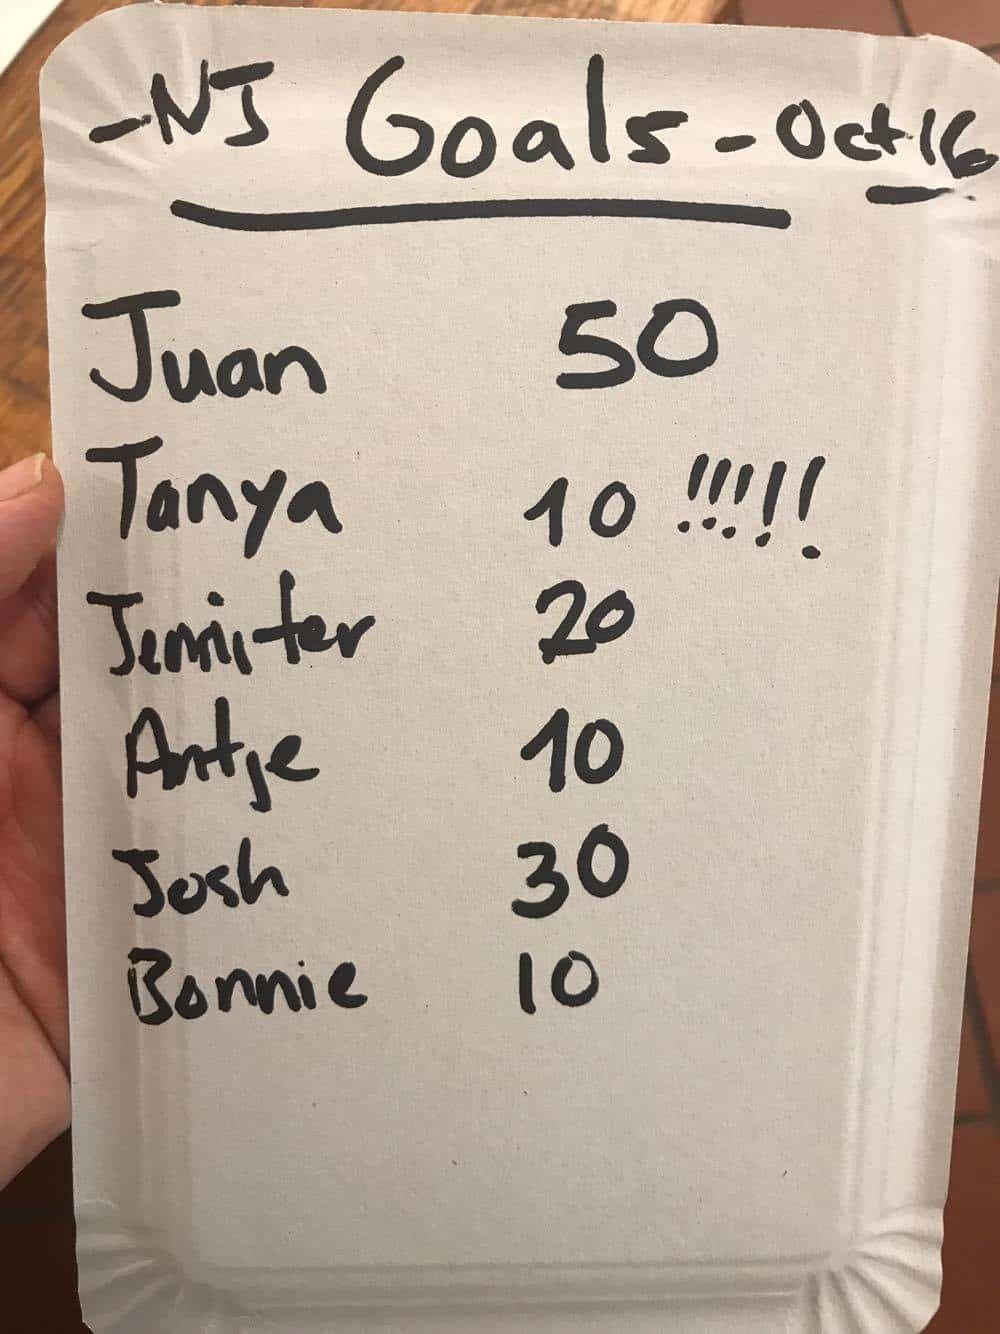 -NJ Goals - Oct 16
Juan 50
Tanya 10 !!!!!
Jennifer 20
Antje 10
Josh 30
Bonnie 10